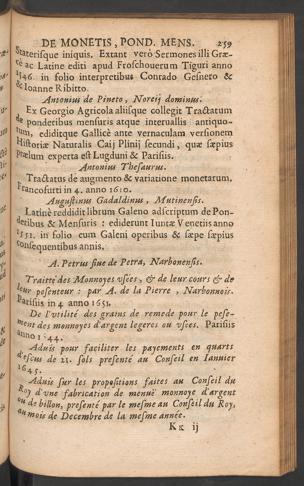 DE MONETIS, POND. MENS. 259
Staterisque iniquis. Extant verò Sermones illi Græ-
cè ac Latine editi apud Froschouerum Tiguri anno
1546. in folio interpretibus Conrado Gesnero &
& Ioanne Ribitto.
Antonius de Pineto, Noreij dominus.
Ex Georgio Agricola aliisque collegit Tractatum
de ponderibus mensuris atque interuallis antiquo-
rum, ediditque Gallicè ante vernaculam versionem
Historiæ Naturalis Caij Plinij secundi, quæ sæpius
prælum experta est Lugduni & Parisiis.
Antonius Thesaurus.
Tractatus de augmento & variatione monetarum.
Francofurti in 4. anno 1610.
Augustinus Gadaldinus, Mutinensis.
Latinè reddidit librum Galeno adscriptum de Pon-
deribus & Mensuris : ediderunt Iuntæ Venetiis anno
in folio cum Galeni operibus & sæpe sæpius
consequentibus annis.
A. Petrus siue de Petra, Narbonensis.
Traitté des Monnoyes vsées, & de leur cours & de
leur pesenteur : par A. de la Pierre, Narbonnois.
Parisiis in 4 anno 1651.
De l'vtilité des grains de remede pour le pese-
ment des monnoyes d'argent legeres ou vsées. Parisiis
anno
Aduis pour faciliter les payements en quarts
d'escus de 21. sols presenté au Conseil en Ianuier
1645.
Aduis sur les propositions faites au Conseil du
Roy d'vne fabrication de menuë monnoye d'argent
ou de billon, presenté par le mesme au Conseil du Roy,
au mois de Decembre de la mesme année.
Kk ij